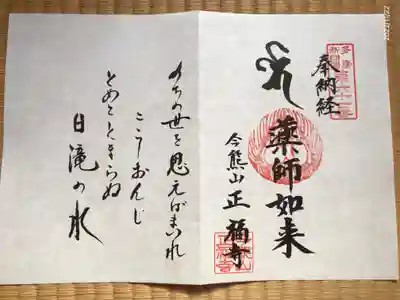 奉納経
薬師如来
今熊山 正福寺
のちの世を思えばまいれ
こうおんじ
とめてとまらぬ
日滝の水